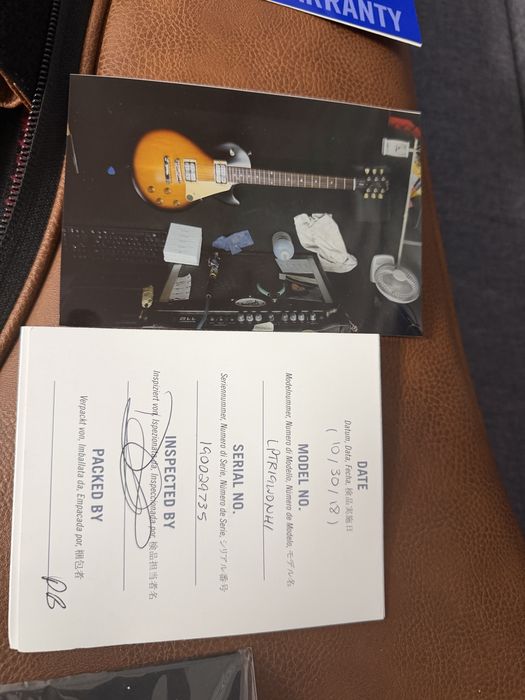 WARRANTY
DATE
Datum, Data, Fecha, 検品実施日
(10/30/18)
MODEL NO.
Modelnummer, Numero di Modello, Número de Modelo, モデル名
LPTR19WDNH1
SERIAL NO.
Seriennummer, Numero di Serie, Número de Serie, シリアル番号
190029735
INSPECTED BY
Inspiziert von, Ispezionata da, Inspeccionada por, 検品担当者名
PACKED BY
Verpackt von, Imballata da, Empacada por, 梱包者
DB